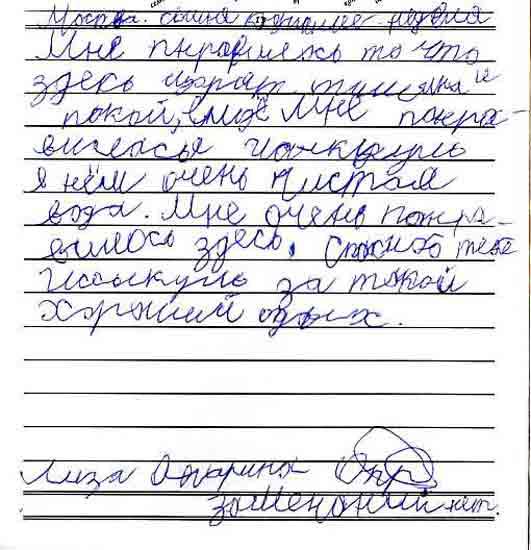 Москва.
Мне пнравилось то что
здесь играт тишина и
покой, ещё мне понра-
вилась Иссыкуль
в нём очень чистая
вода. Мне очень понра-
вилось здесь. Спасибо тебе
Иссыкуль за такой
хороший отдых.
Лиза